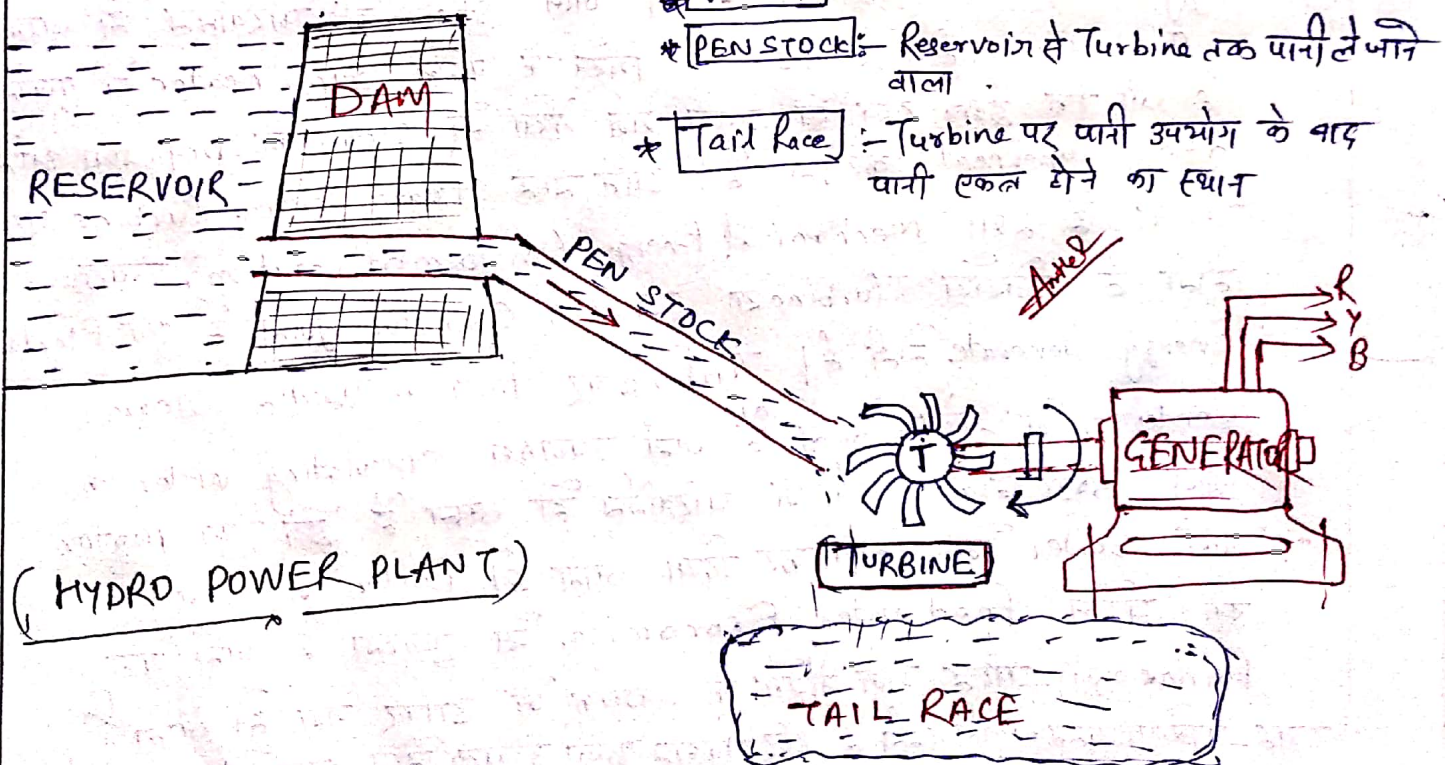 * PEN STOCK :- Reservoir से Turbine तक पानी ले जाने
वाला .
* Tail Race :- Turbine पर पानी उपयोग के बाद
पानी एकत्र होने का स्थान
DAM
RESERVOIR
PEN STOCK
R
Y
B
T
GENERATOR
TURBINE
(HYDRO POWER PLANT)
TAIL RACE